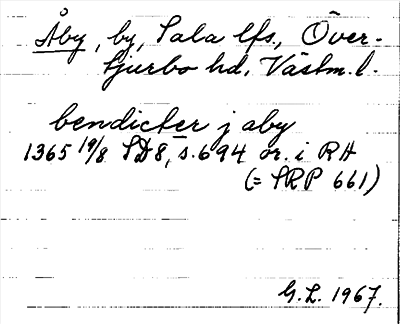 Åby, by, Sala lfs, Över-
tjurbo hd, Västm. l.
bendicter j aby
1365 19/8 SD 8, s. 694 or. i RA
(= SRP 661)
G. L. 1967.